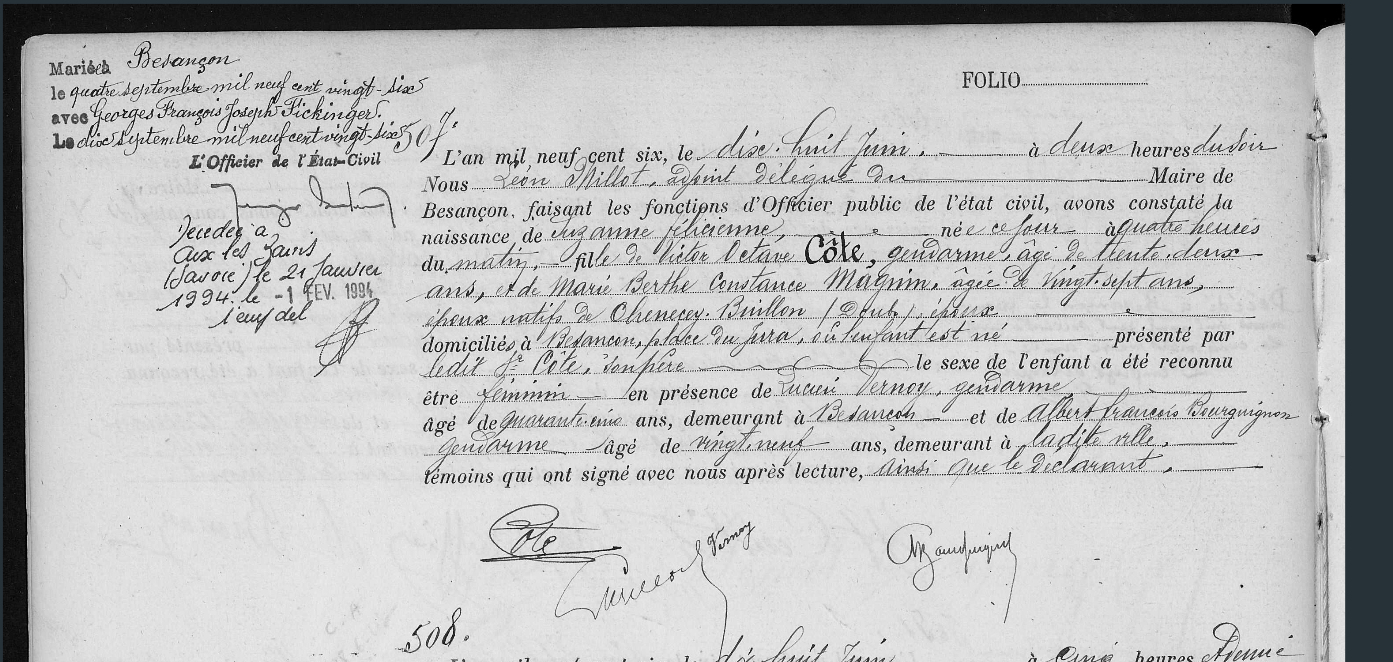 Mariée à Besançon
le quatre septembre mil neuf cent vingt-six
avec Georges François Joseph Fickinger.
Le dix septembre mil neuf cent vingt-six
L'Officier de l'État-Civil
Décédée à
Aix les Bains
(Savoie) le 21 Janvier
1994. le -1 FEV. 1994
FOLIO
507.
L'an mil neuf cent six, le dix-huit Juin. à deux heures du soir
Nous Léon Millot, adjoint délégué du Maire de
Besançon, faisant les fonctions d'Officier public de l'état civil, avons constaté la
naissance de Suzanne Félicienne, née ce jour à quatre heures
du matin, fille de Victor Octave Côte, gendarme, âgé de trente-deux
ans, et de Marie Berthe Constance Magnin, âgée de vingt-sept ans,
époux natifs de Chenecey-Buillon (Doubs) époux
domiciliés à Besançon, place du Jura, où l'enfant est né présenté par
ledit Sr Côte, son père le sexe de l'enfant a été reconnu
être féminin en présence de Lucien Vernoy, gendarme
âgé de quarante-cinq ans, demeurant à Besançon et de Albert François Bourguignon
gendarme âgé de vingt-neuf ans, demeurant à ladite ville,
témoins qui ont signé avec nous après lecture, ainsi que le déclarant.
Côte
Vernoy
508.
dix huit Juin à cinq heures Ademie